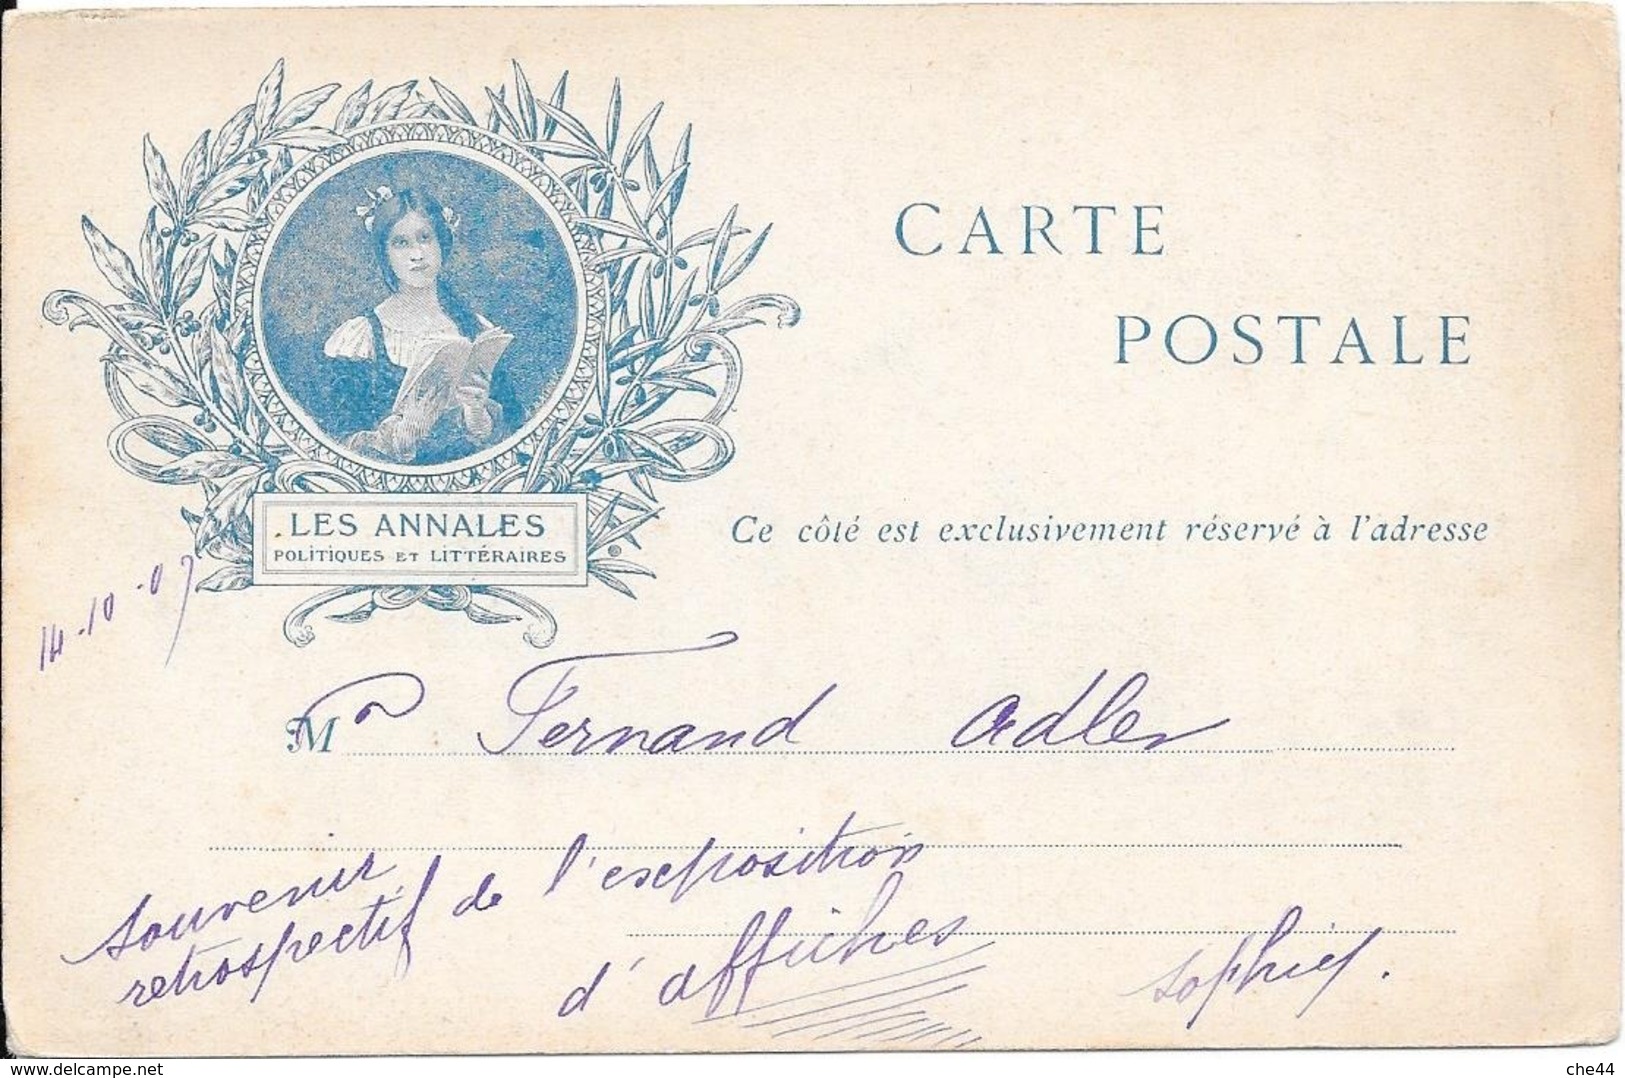 CARTE
POSTALE
LES ANNALES
POLITIQUES ET LITTÉRAIRES
Ce côté est exclusivement réservé à l'adresse
14-10-07
Mr Fernand Adler
souvenir
retrospectif de l'exposition
d'affiches
delcampe.net
che44